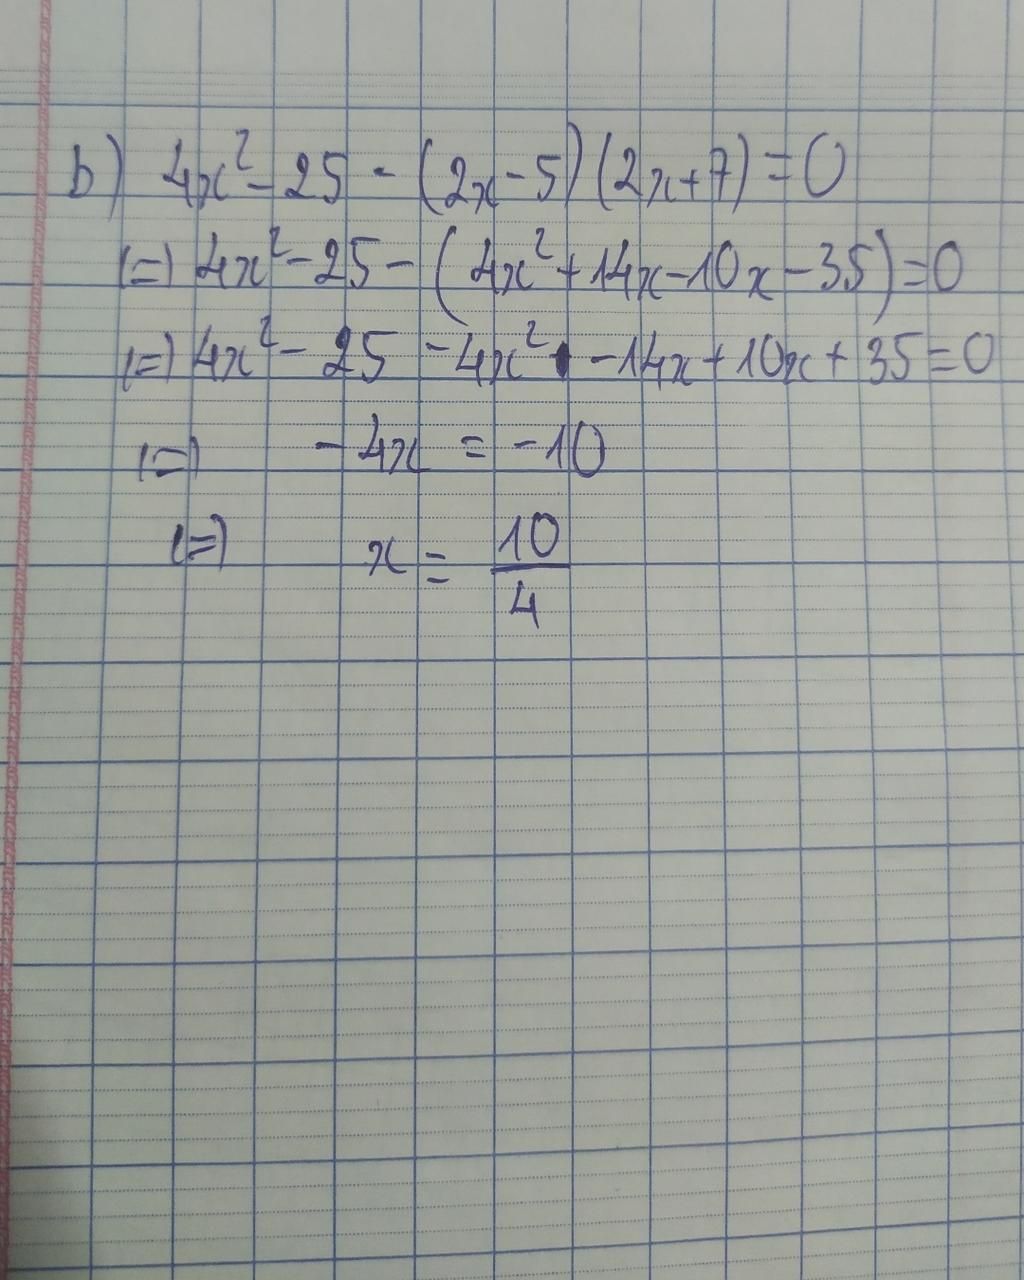 b) 4x² - 25 - (2x - 5)(2x + 7) = 0
(=) 4x² - 25 - (4x² + 14x - 10x - 35) = 0
(=) 4x² - 25 - 4x² - 14x + 10x + 35 = 0
(=) - 4x = - 10
(=) x = 10/4